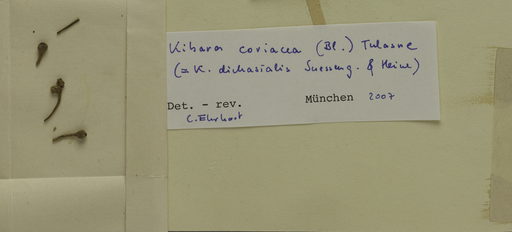 Kibara coriacea (Bl.) Tulasne
(= K. dichasialis Suesseng. & Heine)
Det. - rev. München 2007
C. Ehrhart